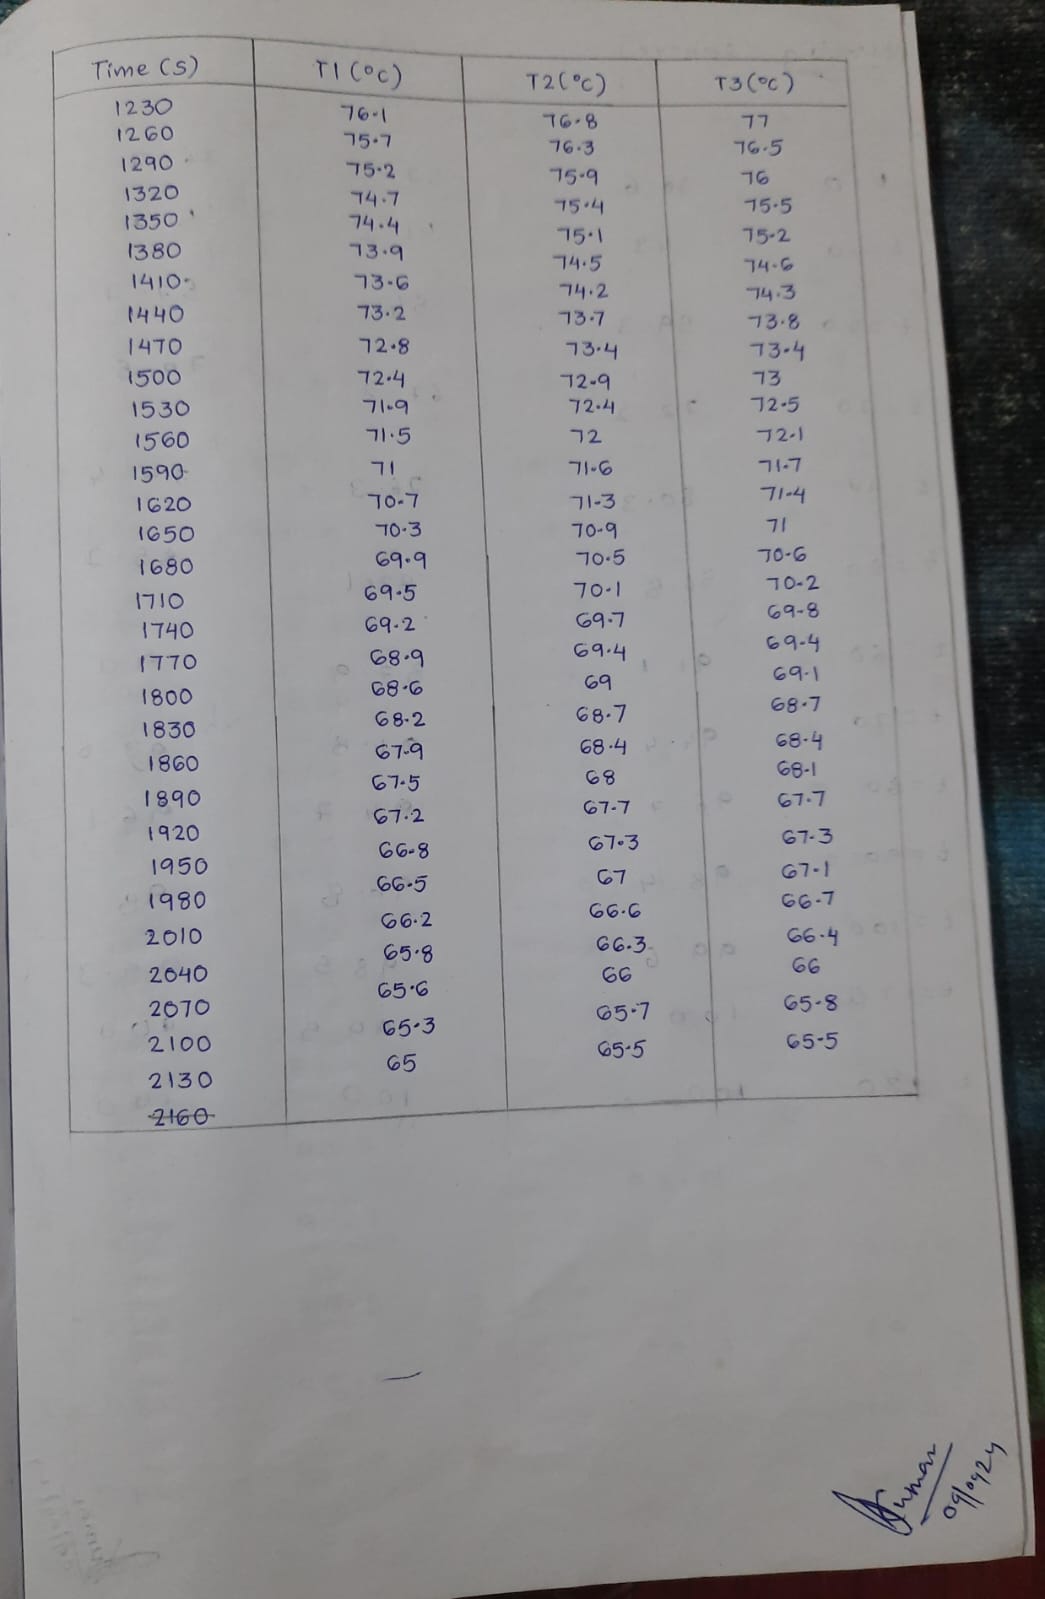 Time (S) T1 (°C) T2 (°C) T3 (°C)
1230 76.1 76.8 77
1260 75.7 76.3 76.5
1290 75.2 75.9 76
1320 74.7 75.4 75.5
1350 74.4 75.1 75.2
1380 73.9 74.5 74.6
1410 73.6 74.2 74.3
1440 73.2 73.7 73.8
1470 72.8 73.4 73.4
1500 72.4 72.9 73
1530 71.9 72.4 72.5
1560 71.5 72 72.1
1590 71 71.6 71.7
1620 70.7 71.3 71.4
1650 70.3 70.9 71
1680 69.9 70.5 70.6
1710 69.5 70.1 70.2
1740 69.2 69.7 69.8
1770 68.9 69.4 69.4
1800 68.6 69 69.1
1830 68.2 68.7 68.7
1860 67.9 68.4 68.4
1890 67.5 68 68.1
1920 67.2 67.7 67.7
1950 66.8 67.3 67.3
1980 66.5 67 67.1
2010 66.2 66.6 66.7
2040 65.8 66.3 66.4
2070 65.6 66 66
2100 65.3 65.7 65.8
2130 65 65.5 65.5
2160